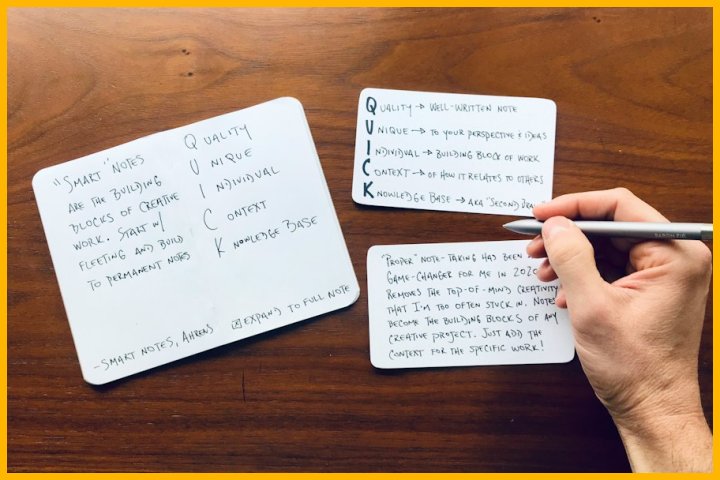 "SMART" NOTES
ARE THE BUILDING
BLOCKS OF CREATIVE
WORK. START W/
FLEETING AND BUILD
TO PERMANENT NOTES
QUALITY
UNIQUE
INDIVIDUAL
CONTEXT
KNOWLEDGE BASE
-SMART NOTES, AHRENS
☒ EXPAND TO FULL NOTE
QUALITY → WELL-WRITTEN NOTE
UNIQUE → TO YOUR PERSPECTIVE & IDEAS
INDIVIDUAL → BUILDING BLOCK OF WORK
CONTEXT → OF HOW IT RELATES TO OTHERS
KNOWLEDGE BASE → AKA "SECOND
"PROPER" NOTE-TAKING HAS BEEN
GAME-CHANGER FOR ME IN 2020
REMOVES THE TOP-OF-MIND CREATIVITY
THAT I'M TOO OFTEN STUCK IN. NOTES
BECOME THE BUILDING BLOCKS OF ANY
CREATIVE PROJECT. JUST ADD THE
CONTEXT FOR THE SPECIFIC WORK!